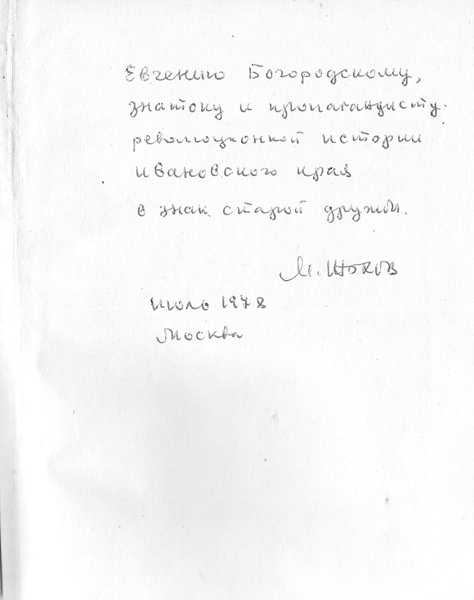 Евгению Богородскому,
знатоку и пропагандисту
революционной истории
Ивановского края
в знак старой дружбы.
М.
июль 1978
Москва